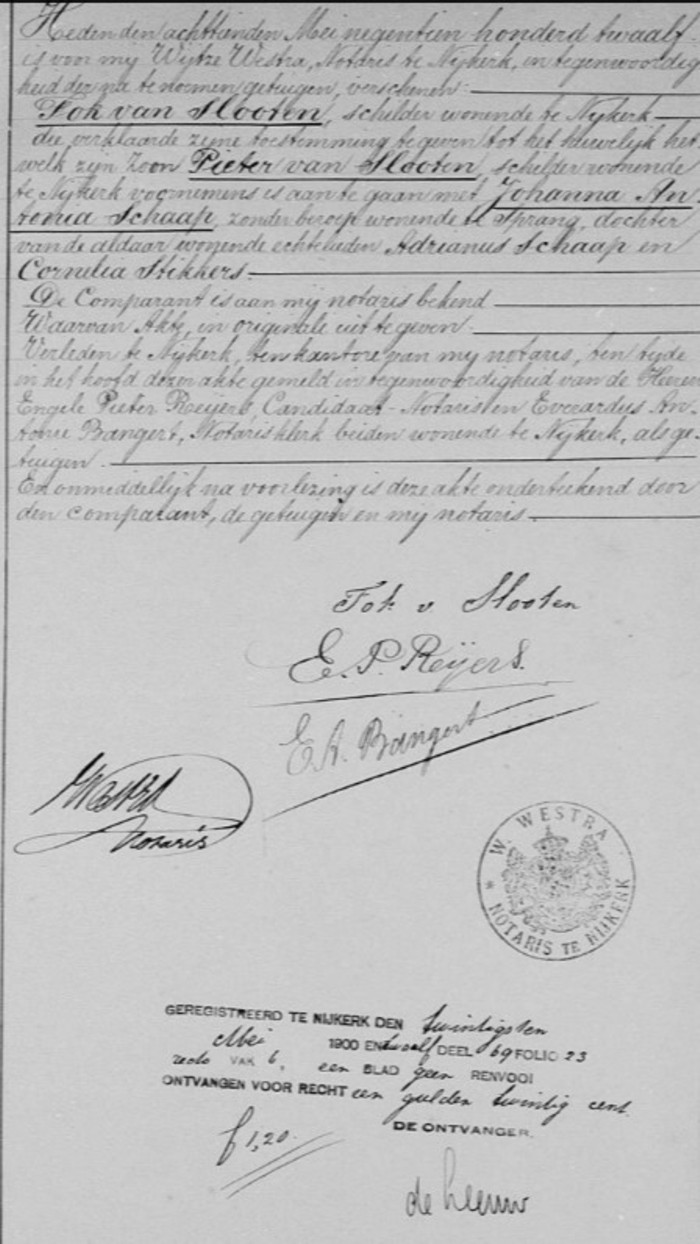 Heden den achttienden Mei negentien honderd twaalf
is voor mij Wijtze Westra, Notaris te Nijkerk, in tegenwoordig
heid der na te noemen getuigen, verschenen:
Fok van Slooten, schilder wonende te Nijkerk
die verklaarde zijne toestemming te geven tot het huwelijk het
welk zijn Zoon Pieter van Slooten, schilder wonende
te Nijkerk voornemens is aan te gaan met Johanna An
tonia Schaap, zonder beroep wonende te Sprang, dochter
van de aldaar wonende echtelieden Adrianus Schaap en
Cornelia Stikkers.
De Comparant is aan mij notaris bekend
Waarvan Akte, in originale uit te geven.
Verleden te Nijkerk, ten kantore van mij notaris, ten tijde
in het hoofd dezer akte gemeld in tegenwoordigheid van de Heeren
Engele Pieter Reijers, Candidaat-Notaris en Everardus An
tonie Bangert, Notarisklerk beiden wonende te Nijkerk, als ge-
tuigen.
En onmiddellijk na voorlezing is deze akte onderteekend door
den comparant, de getuigen en mij notaris.
Fok v. Slooten
E. P. Reijers.
E. A. Bangert
Westra
Notaris
W. WESTRA
* NOTARIS TE NIJKERK
GEREGISTREERD TE NIJKERK DEN twintigsten
Mei 1900 EN twaalf DEEL 69 FOLIO 23
recto VAK 6, een BLAD geen RENVOOI
ONTVANGEN VOOR RECHT een gulden twintig cent.
f 1,20. DE ONTVANGER.
de Leeuw